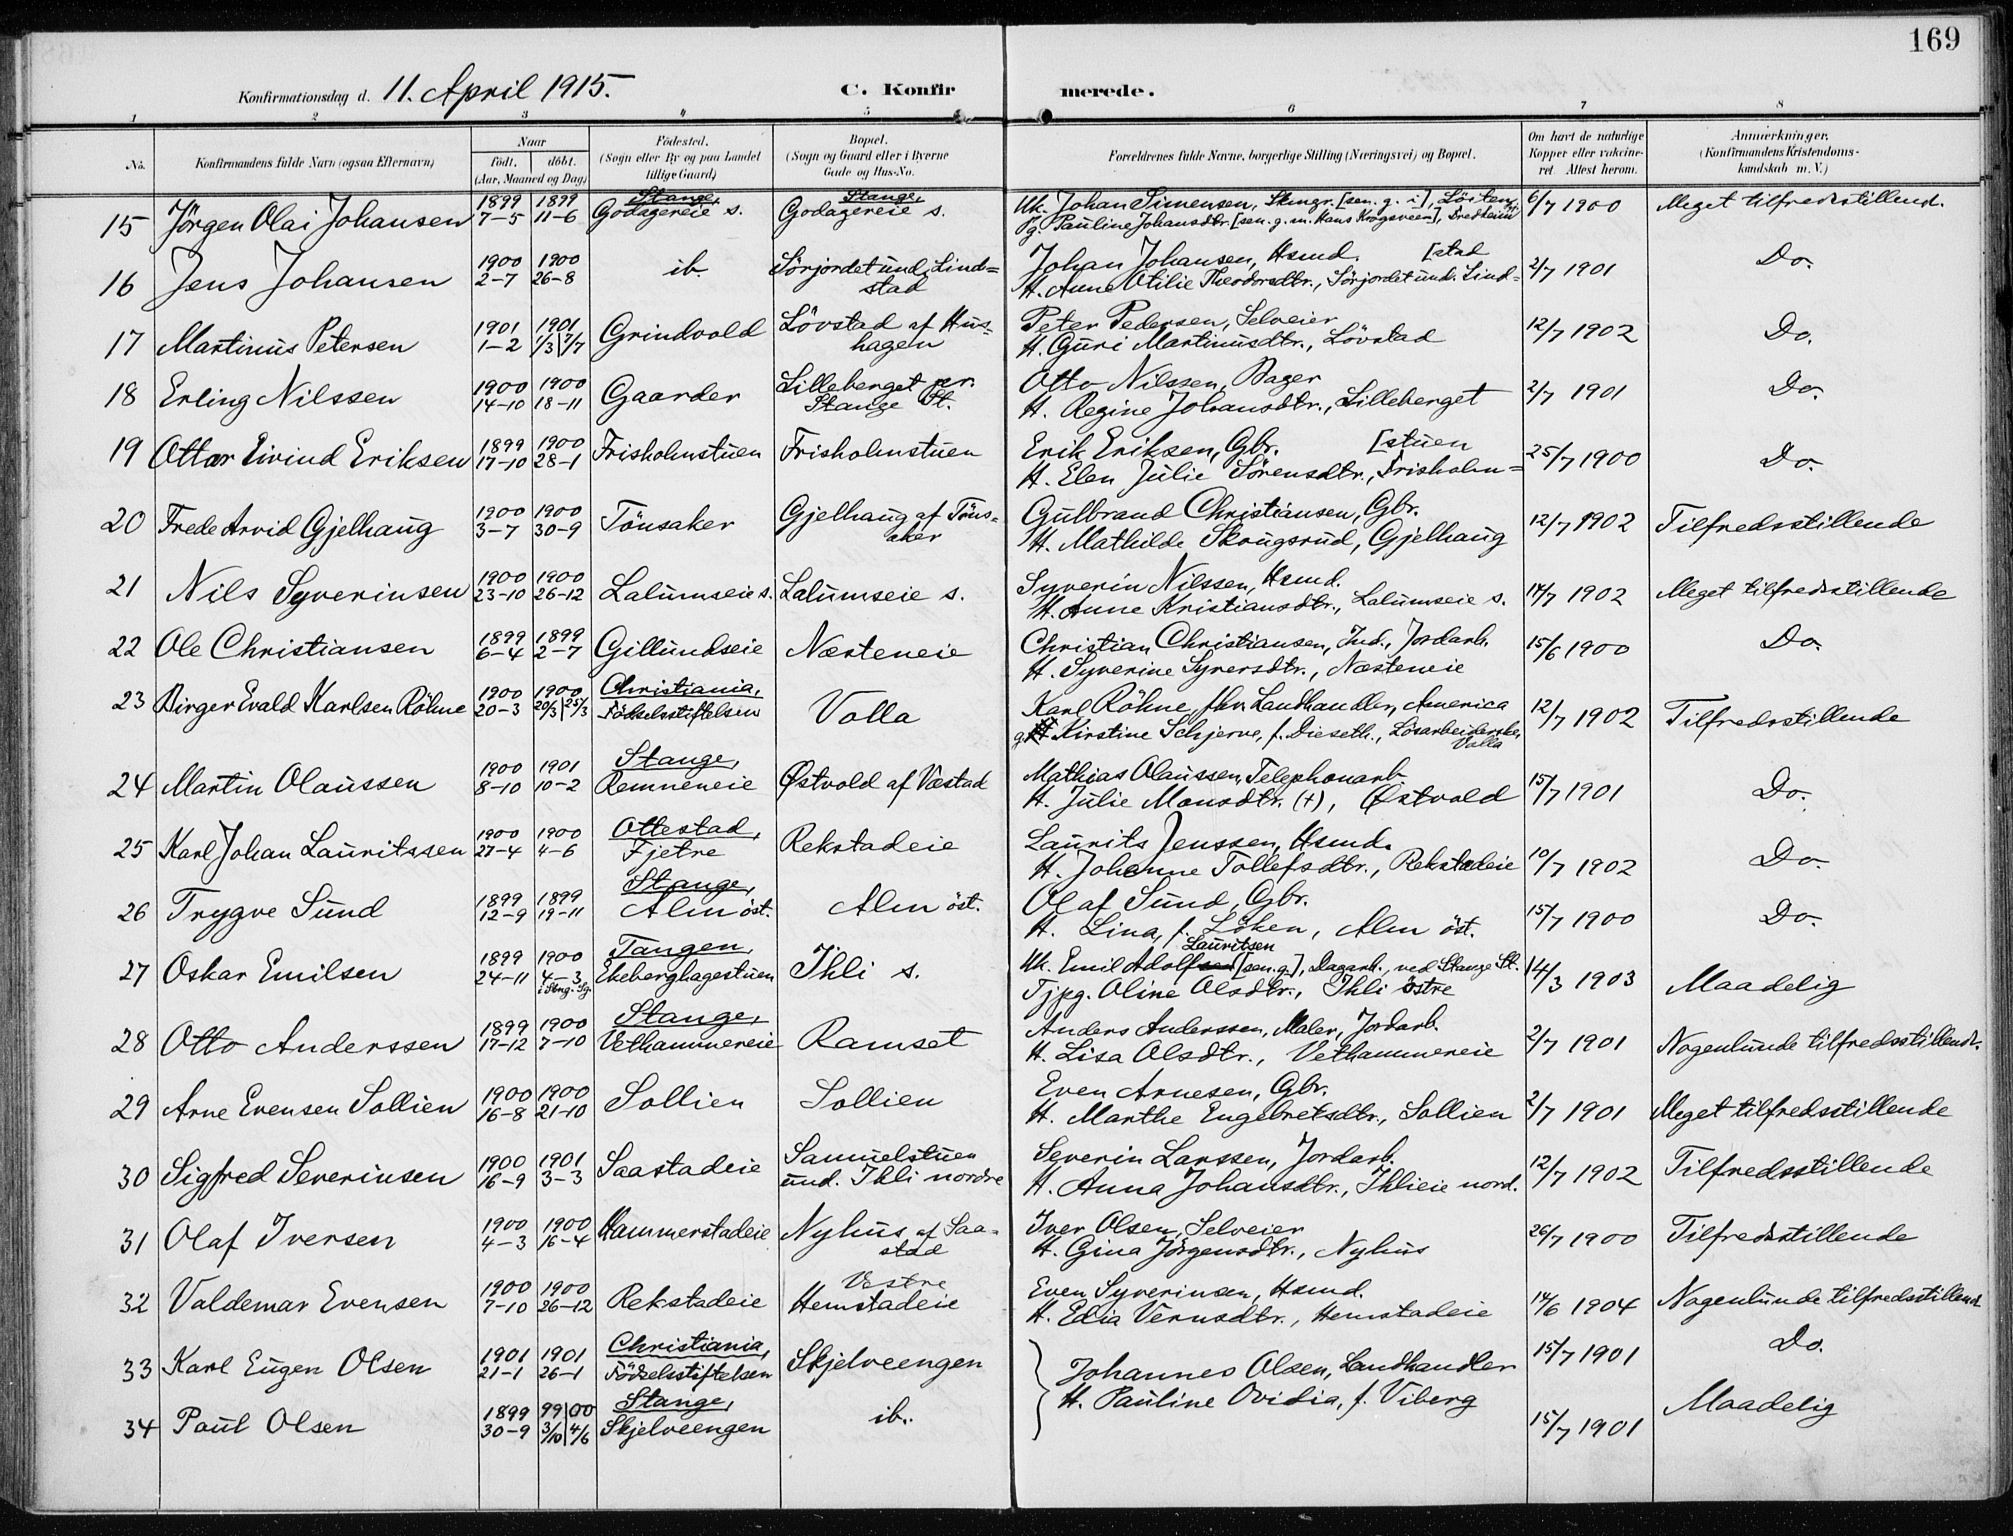 169
Konfirmationsdag d. 11. April 1915. C. Konfirmerede.
1 2 3 4 5 6 7 8
No. Konfirmandens fulde Navn (ogsaa Efternavn) Naar født. døbt. (Aar, Maaned og Dag) Fødested. (Sogn eller By og paa Landet tillige Gaard) Bopæl. (Sogn og Gaard eller i Byerne Gade og Hus-No. Forældrenes fulde Navne, borgerlige Stilling (Næringsvei) og Bopæl. Om havt de naturlige Kopper eller vakcineret. Attest herom. Anmærkninger. (Konfirmandens Kristendomskundskab m. V.)
15 Jörgen Olai Johansen 1899 7-5 1899 11-6 Stange, Godagereie s. Stange, Godagereie s. Uk. Johan Simensen, [sen. g. i], Löiten, 6/7 1900 Meget tilfredsstillend.
g. Pauline Johansdtr. [sen. g. m. Hans Krogsveen],
16 Jens Johansen 1900 2-7 1900 26-8 ib. Sörjordet und. Lind=stad Johan Johansen, Hsmd. 2/7 1901 Do.
H. Anne Otilie Theodorsdtr., Sörjordet und. Lind=[stad
17 Martinus Petersen 1901 1-2 1901 1/3|7/7 Grindvold Lövstad af Hus-hagen Peter Pedersen, Selveier 12/7 1902 Do.
H. Guri Martinusdtr., Lövstad
18 Erling Nilssen 1900 14-10 1900 18-11 Gaarder Lilleberget pr. Stange St. Otto Nilssen, Bager 2/7 1901 Do.
H. Regine Johansdtr., Lilleberget
19 Ottar Eivind Eriksen 1899 17-10 1900 28-1 Frisholmstuen Frisholmstuen Erik Eriksen, Gbr. 25/7 1900 Do.
H. Elen Julie Sörensdtr., Frisholm=[stuen
20 Frede Arvid Gjelhaug 1900 3-7 1900 30-9 Tönsaker Gjelhaug af Töns-aker Gulbrand Christiansen, Gbr. 12/7 1902 Tilfredsstillende
H. Mathilde Skougsrud, Gjelhaug
21 Nils Syverinsen 1900 23-10 1900 26-12 Lalumseie s. Lalumseie s. Syverin Nilssen, Hsmd. 14/7 1902 Meget tilfredsstillende
H. Anne Kristiansdtr., Lalumseie s.
22 Ole Christiansen 1899 6-4 1899 2-7 Gillundseie Næsteneie Christian Christiansen, Ind., Jordarb. 15/6 1900 Do.
H. Syverine Syversdtr., Næsteneie
23 Birger Evald Karlsen Röhne 1900 20-3 1900 20/3|25/3 Christiania, Födselsstiftelsen Volla Karl Röhne, fhv. Landhandler, America 12/7 1902 Tilfredsstillende
g. Kirstine Schjerve, f. Dieseth., Lösarbeiderske, Volla
24 Martin Olaussen 1900 8-10 1901 10-2 Stange, Remneneie Østvold af Væstad Mathias Olaussen, Telephonarb. 15/7 1901 Do.
H. Julie Monsdtr. (+), Østvold
25 Karl Johan Lauritssen 1900 27-4 1900 4-6 Ottestad, Fjetre Rekstadeie Laurits Jenssen, Hsmd. 10/7 1902 Do.
H. Johanne Tollefsdtr., Rekstadeie
26 Trygve Sund 1899 12-9 1899 19-11 Stange, Alm öst. Alm öst. Olaf Sund, Gbr. 15/7 1900 Do.
H. Lina, f. Löken, Alm öst.
27 Oskar Emilsen 1899 24-11 1900 4-3 i Stng. Sg. Tangen, Ekeberghagestuen Ihli s. Uk. Emil Adolfsen Lauritsen [sen. g.], Dagarb., ved Stange St. 14/3 1903 Maadelig
Tjpg. Oline Olsdtr., Ihli östre
28 Otto Anderssen 1899 17-12 1900 7-10 Stange, Vethammereie Ramset Anders Anderssen, Maler, Jordarb. 2/7 1901 Nogenlunde tilfredsstillende.
H. Lisa Olsdtr., Vethammereie
29 Arne Evensen Sollien 1900 16-8 1900 21-10 Sollien Sollien Even Arnesen, Gbr. 2/7 1901 Meget tilfredsstillende
H. Marthe Engebretsdtr., Sollien
30 Sigfred Severinsen 1900 16-9 1901 3-3 Saastadeie Samuelstuen und. Ihli nordre Severin Larssen, Jordarb. 12/7 1902 Tilfredsstillende
H. Anna Johansdtr., Ihlieie nord.
31 Olaf Iversen 1900 4-3 1900 16-4 Hammerstadeie Nyhus af Saa-stad Iver Olsen, Selveier 26/7 1900 Tilfredsstillende
H. Gina Jörgensdtr., Nyhus
32 Valdemar Evensen 1900 7-10 1900 26-12 Rekstadeie Vestre Hemstadeie Even Syverinsen, Hsmd. 14/6 1904 Nogenlunde tilfredsstillend
H. Edia Vernsdtr., Hemstadeie
33 Karl Eugen Olsen 1901 21-1 1901 26-1 Christiania, Födselsstiftelsen Skjelveengen Johannes Olsen, Landhandler 15/7 1901 Do.
H. Pauline Ovidia, f. Viberg
34 Paul Olsen 1899 30-9 99|00 3/10|4/6 Stange, Skjelveengen ib. 15/7 1901 Maadelig